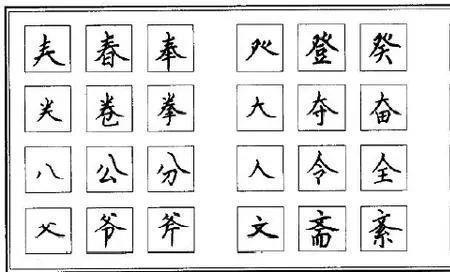 𡗗 春 奉 癶 登 癸
龹 卷 拳 大 夺 奋
八 公 分 人 令 全
父 爷 斧 文 斋 紊